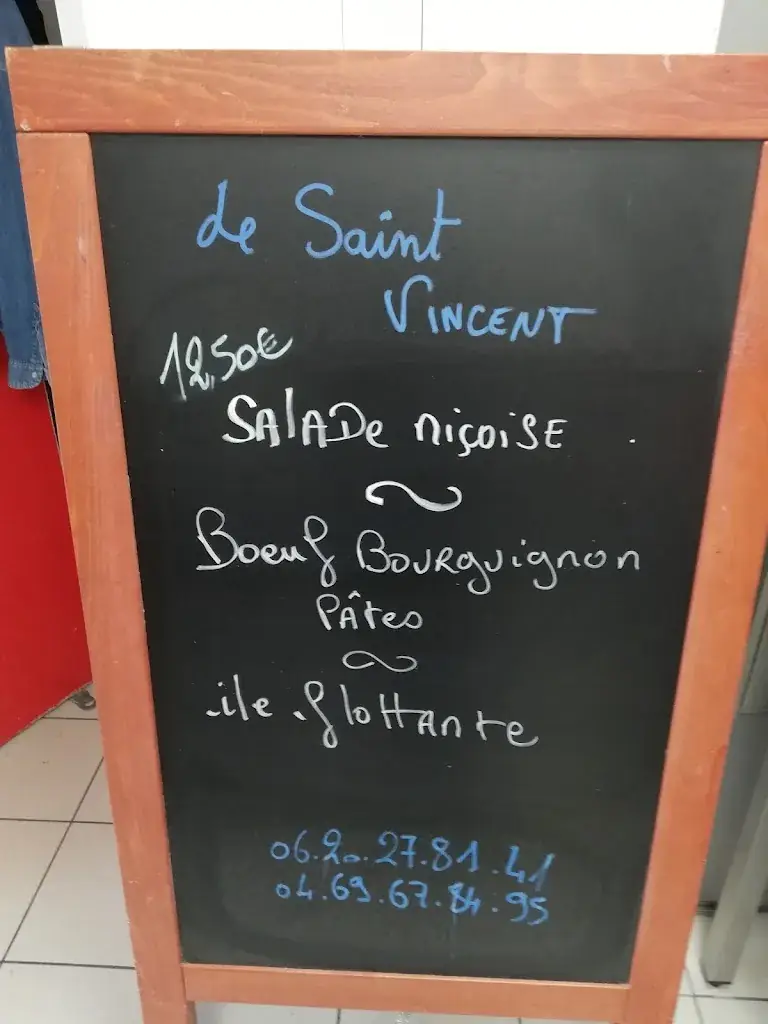 de Saint
VINCENT
12,50€
SALADe niçoiSE
Boeuf BOURguignon
PÂtes
ile flottante
06.20.27.81.41
04.69.67.84.95